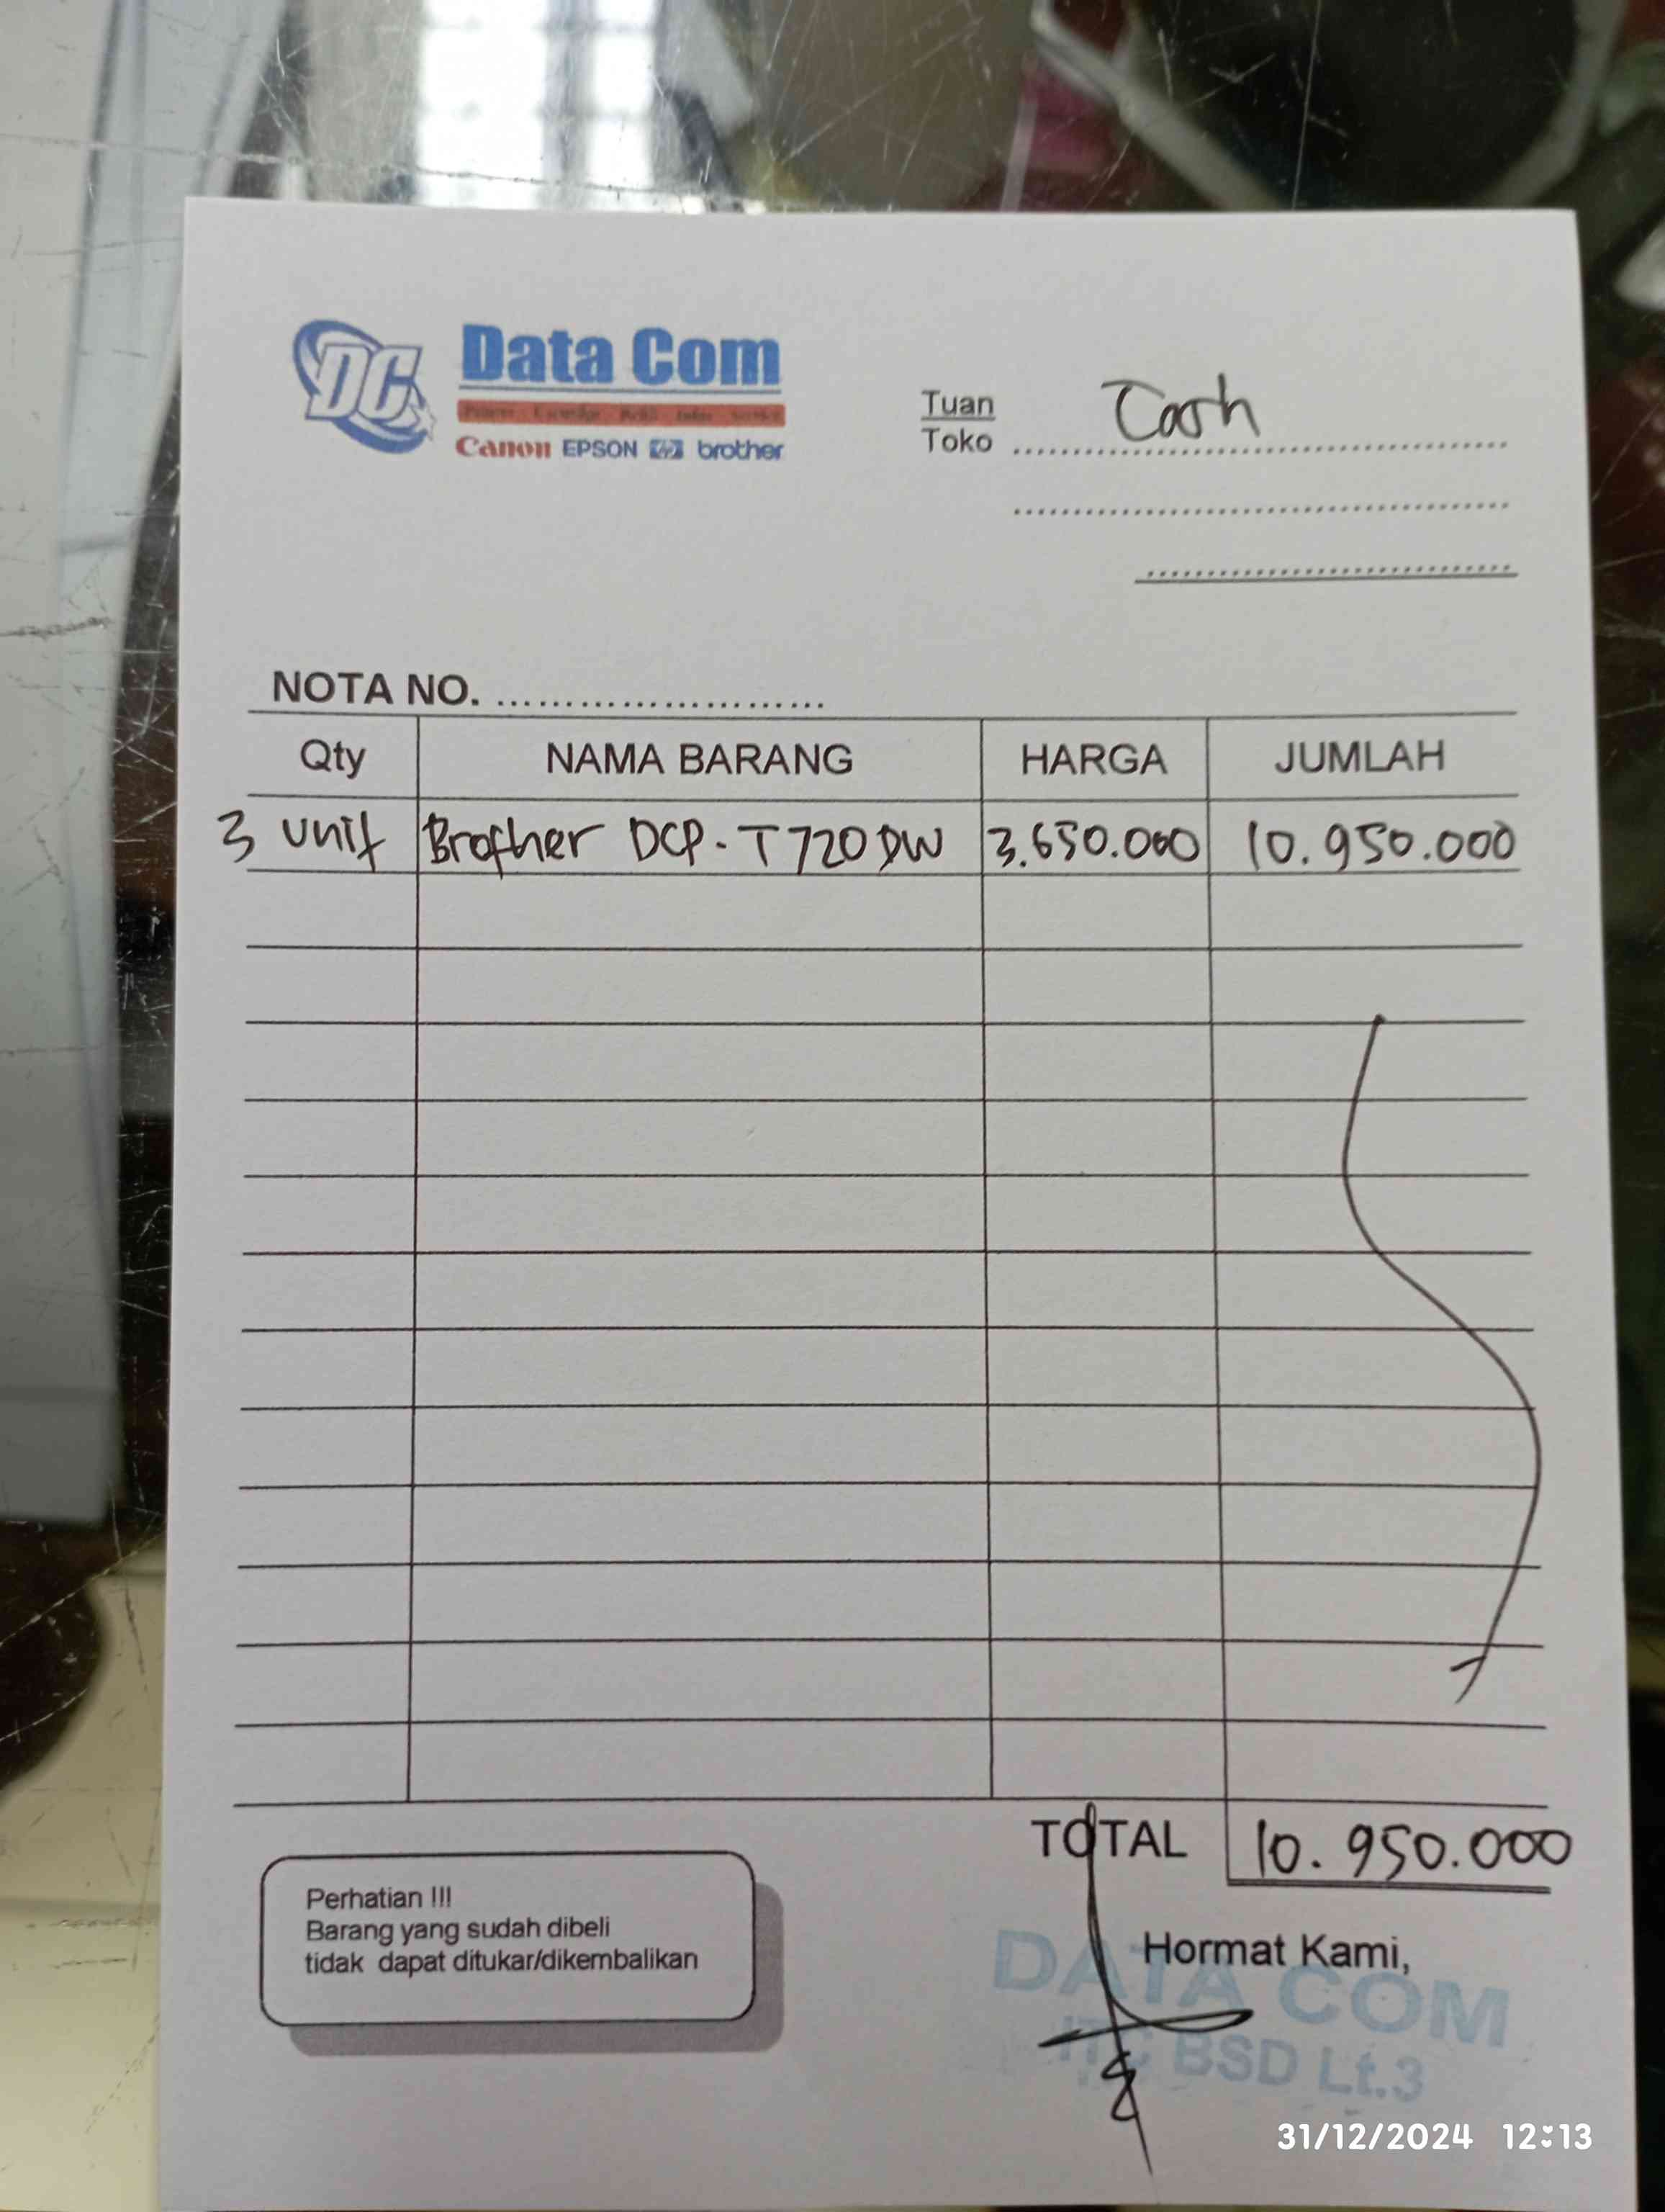 DC Data Com
Canon EPSON hp brother
Tuan Cash
Toko
NOTA NO. ........................
Qty NAMA BARANG HARGA JUMLAH
3 unit Brother DCP-T720DW 3.650.000 10.950.000
TOTAL 10.950.000
Perhatian !!!
Barang yang sudah dibeli
tidak dapat ditukar/dikembalikan
Hormat Kami,
DATA COM
ITC BSD Lt.3
31/12/2024 12:13